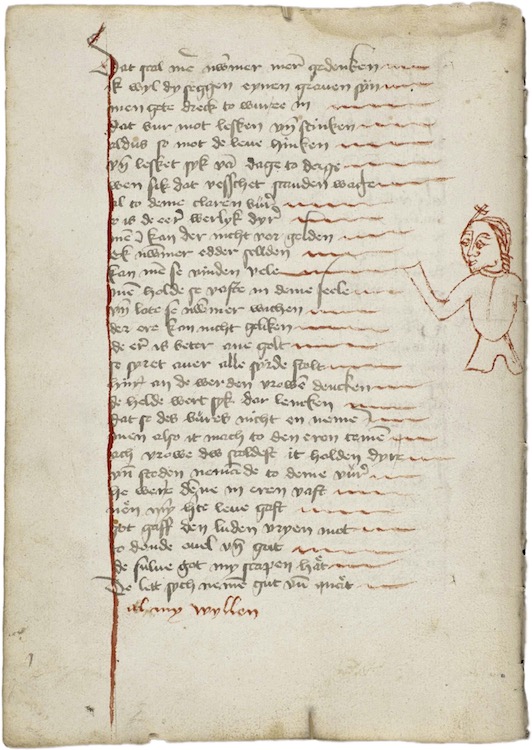 Dat scal me nummer mer gedenken
Ik wyl dy seggen eynen grauen syn
men gete dreck to water in
dat vur mot lesken vn stinken
aldus so mot de leue hinken
vn lesket syk van dage to dage
wen sik dat vesschet scauden wage
al to deme claren vur
er is de er werlyk dyr
men kan der nicht vor gelden
Ek nummer edder selden
kan me se vinden vele
men holde se vaste in deme seele
vn lote se nummer wichen
der ere kan nicht geliken
de er is beter ane golt
se syret auer alle syrde stolt
an de werden vrowen dencken
de helde wert syk dar lencken
dat se des nicht en neme
men also it mach to den eren temen
ach vrowe du scoldest it holden dyre
vn scoden nemande to deme vur
he were denne in eren vast
my leue gast
got gaff den luden vryen mot
to donde ouel vn gut
de sulue got my scapen hat
De lett sych nemen gut vn quat
al my wyllen